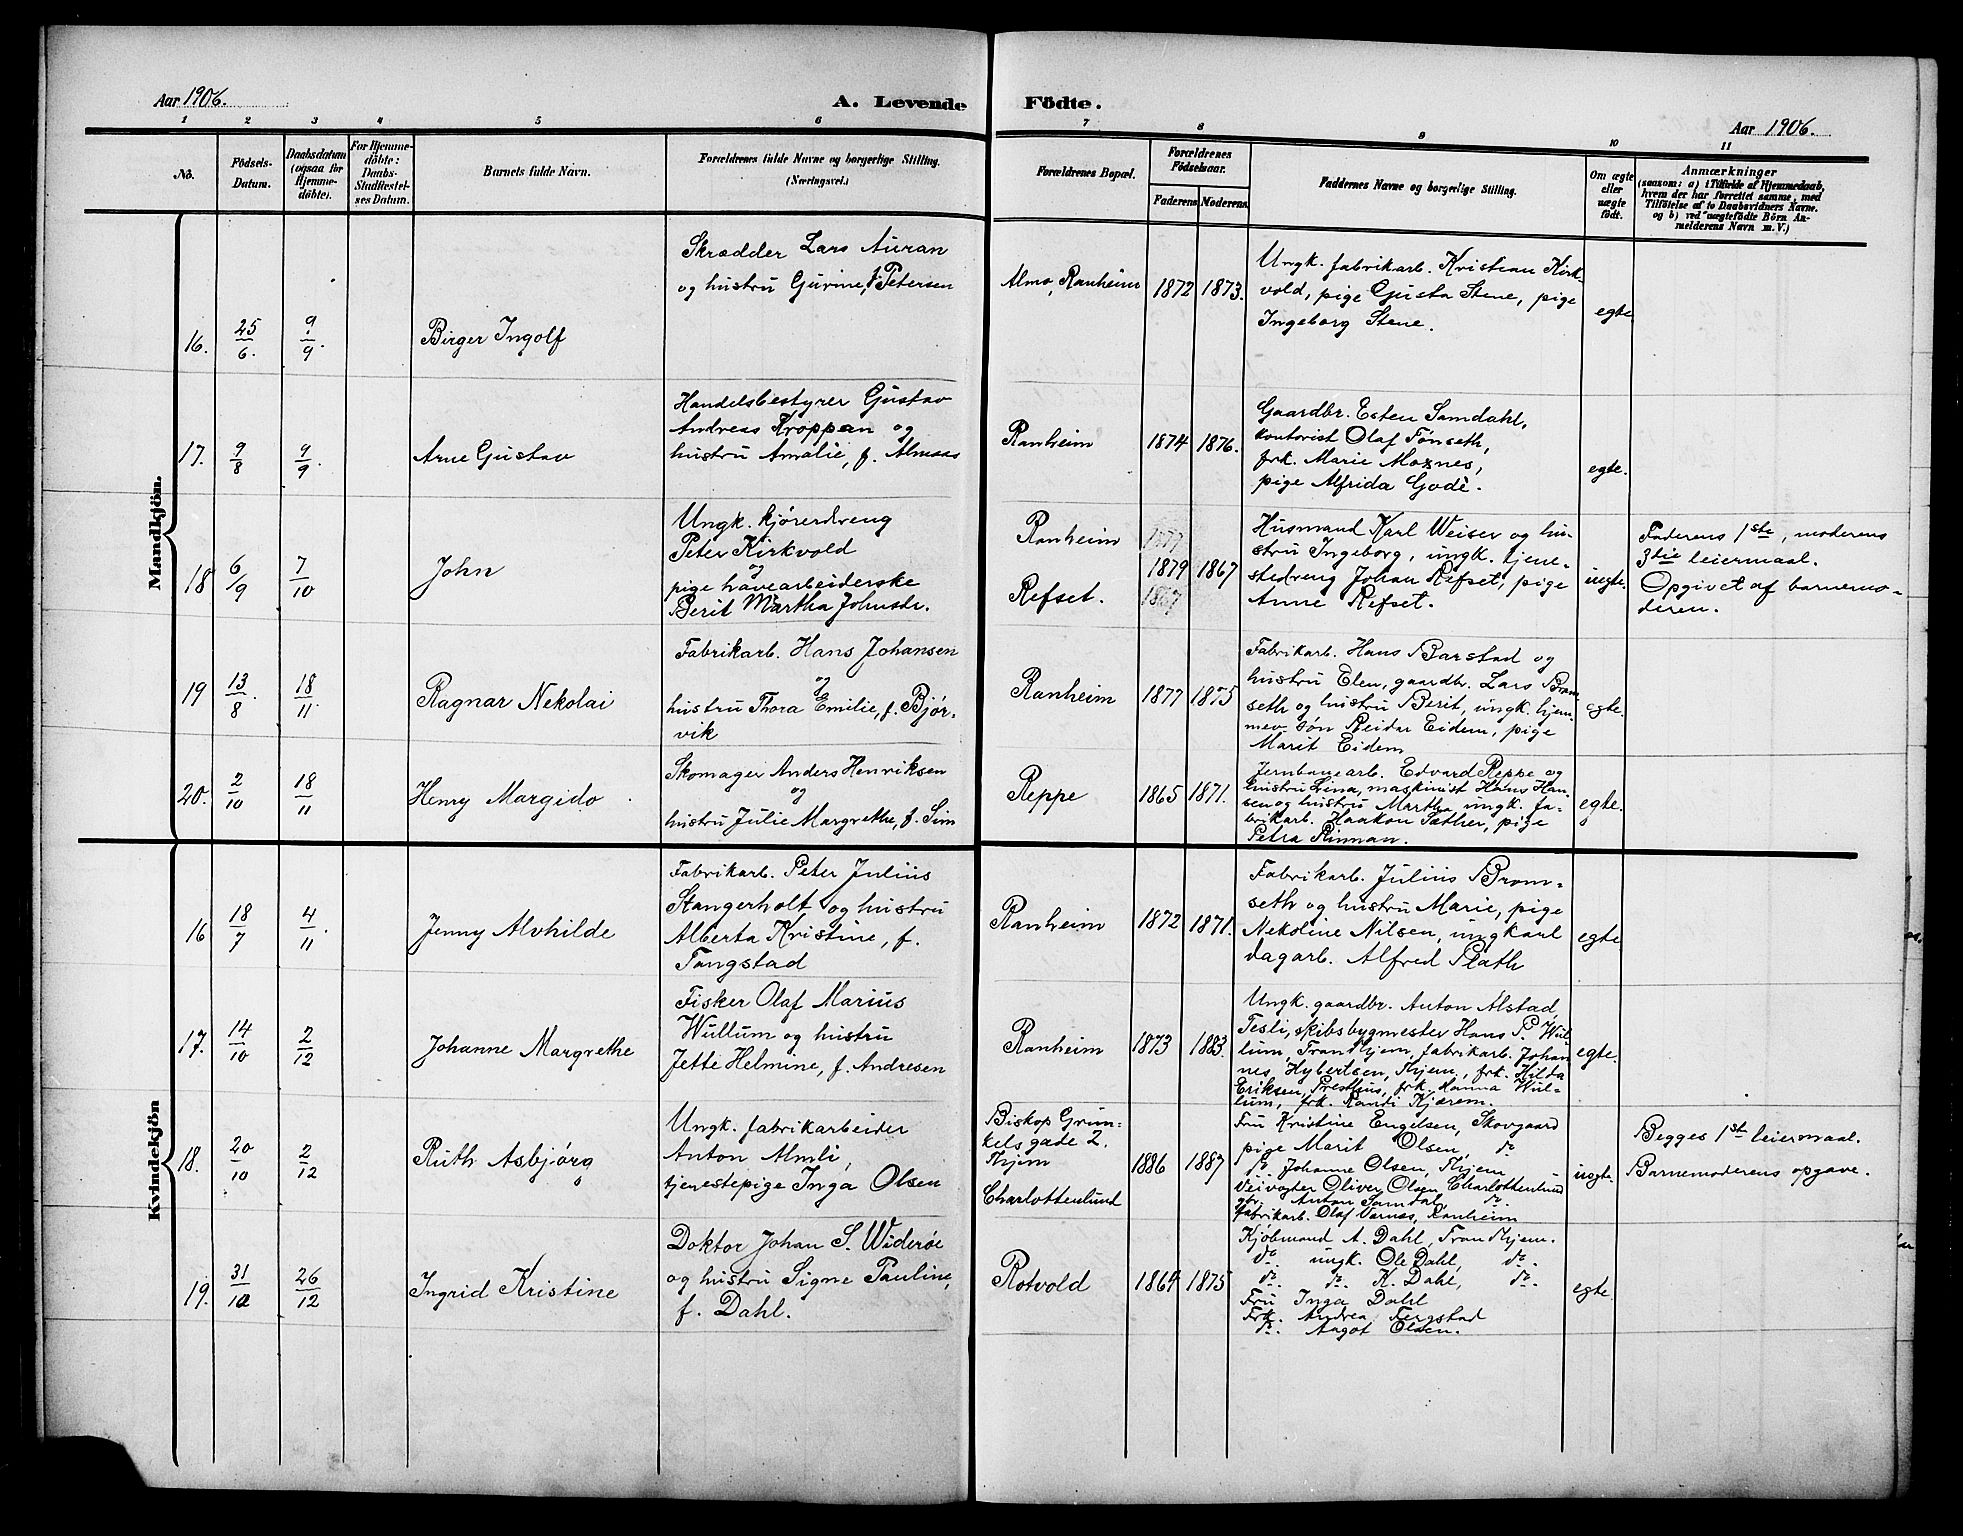 Aar 1906.
A. Levende Födte.
Aar 1906.
1 2 3 4 5 6 7 8 9 10 11
No.
Födsels-
Datum.
Daabsdatum
(ogsaa for
Hjemme-
döbte).
For Hjemme-
döbte:
Daabs-
Stadfæstel-
ses Datum.
Barnets fulde Navn.
Forældrenes fulde Navne og borgerlige Stilling.
(Næringsvei.)
Forældrenes Bopæl.
Forældrenes
Födselsaar.
Faderens
Moderens
Faddernes Navne og borgerlige Stilling.
Om ægte
eller
uægte
født.
Anmærkninger
(saasom: a) i Tilfælde af Hjemmedaab,
hvem der har forrettet samme, med
Tilföielse af to Daabsvidners Navne.
og b) ved uægtefödte Börn An-
melderens Navn m. V.)
Mandkjön.
16.
25/6.
9/9
Birger Ingolf
Skrædder Lars Auran
og hustru Gurine, f. Petersen
Almo, Ranheim
1872
1873.
Ungk. fabrikarb. Kristian Kirk-
vold, pige Gusta Stene, pige
Ingeborg Stene.
egte
17.
9/8
9/9.
Arne Gustav
Handelsbestyrer Gustav
Andreas Kroppan og
hustru Amalie, f. Almaas
Ranheim
1874
1876.
Gaardbr. Esten Samdahl,
kontorist Olaf Tønseth,
frk. Marie Moxnes,
pige Alfrida Godè.
egte.
18
6/9
7/10
John
Ungk. kjørerdreng
Peter Kirkvold
og
pige havearbeiderske
Berit Martha Johnsdr.
Ranheim
Refset.
1877
1879
1867
1867
Husmand Karl Weiser og hu-
stru Ingeborg, ungk. tjene-
stedreng Johan Refset, pige
Anne Refset.
uegte.
Faderens 1ste, moderens
3tie leiermaal.
Opgivet af barnemo-
deren.
19
13/8.
18/11
Ragnar Nekolai
Fabrikarb. Hans Johansen
og
hustru Thora Emilie, f. Bjør-
vik
Ranheim
1877
1875
Fabrikarb. Hans Barstad og
hustru Elen, gaardbr. Lars Brom-
seth og hustru Berit, ungk. hjem-
mev. søn Reidar Eidem, pige
Marit Eidem
egte.
20.
2/10
18/11
Henry Margido
Skomager Anders Henriksen
og
hustru Julie Margrethe, f. Sim
Reppe
1865
1871.
Jernbanearb. Edvard Reppe og
hustru Lina, maskinist Hans Han-
sen og hustru Martha, ungk. fa-
brikarb. Haakon Sæther, pige
Petra Rinnan.
egte.
Kvindekjön
16
18/7
4/11.
Jenny Alvhilde
Fabrikarb. Peter Julius
Stangerholt og hustru
Alberta Kristine, f.
Tangstad
Ranheim
1872
1871.
Fabrikarb. Julius Brom-
seth og hustru Marie, pige
Nekoline Nilsen, ungkarl
dagarb. Alfred Plath
egte
17.
14/10
2/12
Johanne Margrethe
Fisker Olaf Marius
Wullum og hustru
Jette Helmine, f. Andresen
Ranheim
1873
1883.
Ungk. gaardbr. Anton Alstad,
Tesli, skibsbygmester Hans P. Wul-
lum, Trondhjem, fabrikarb. Johan-
nes Hybertsen, Thjem., frk. Hilda
Eriksen, Presthus, frk. Hanna Wul-
lum, frk. Randi Kjærem.
egte.
18.
20/10
2/12
Ruth Asbjørg
Ungk. fabrikarbeider
Anton Almli,
tjenestepige Inga Olsen
Biskop Grun-
kelsgade 2.
Thjem
Charlottenlund
1886
1887
Fru Kristine Engelsen, Skovgaard
pige Marit Olsen, do
do. Johanne Olsen, Thjem
Veivogter Oliver Olsen Charlottenlund
gbr. Anton Samdal, do.
fabrikarb. Olaf Varnæs, Ranheim
uegte.
Begges 1ste leiermaal.
Barnemoderens opgave.
19.
31/10
26/12
Ingrid Kristine
Doktor Johan S. Widerøe
og hustru Signe Pauline,
f. Dahl.
Rotvold
1869
1875
Kjøbmand A. Dahl, Trondhjem.
do. ungk. Ole Dahl, do.
do. do. K. Dahl, do.
Fru Inga Dahl
Frk. Andrea Fergstad
do. Aagot Olsen.
egte.